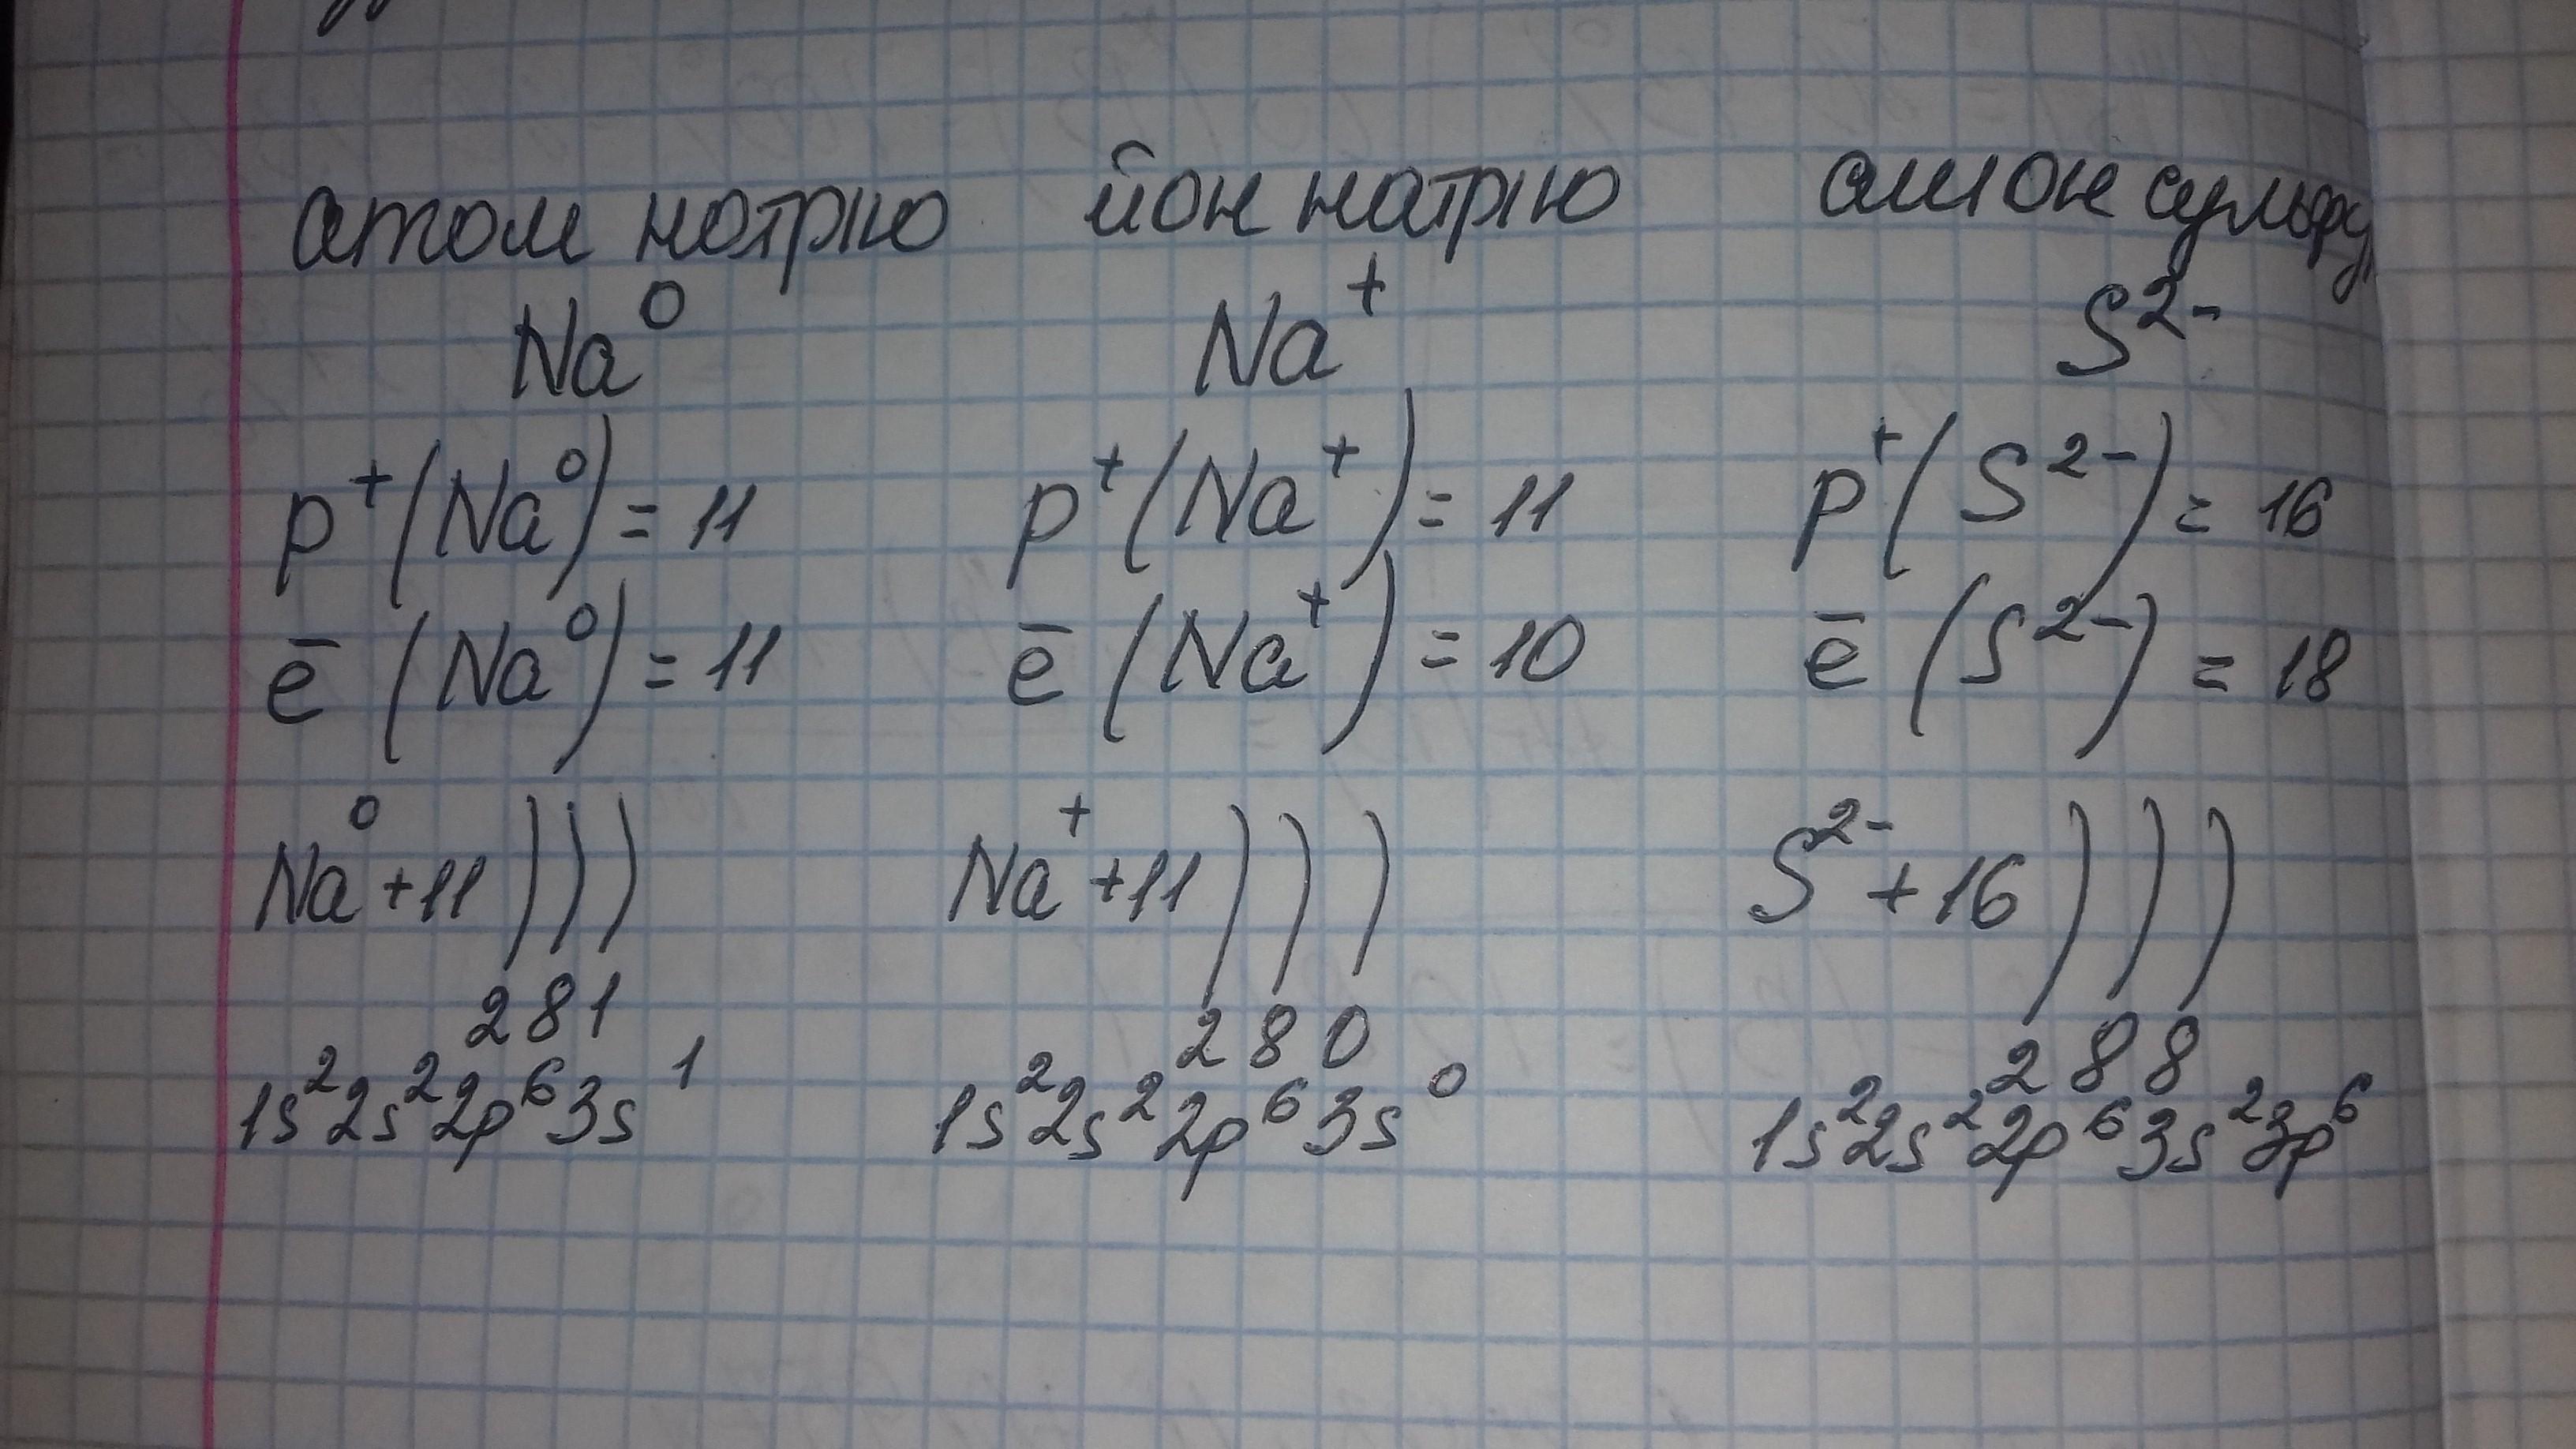 атом натрію йон натрію аніон сульфу
Na⁰ Na⁺ S²⁻
p⁺(Na⁰) = 11 p⁺(Na⁺) = 11 p⁺(S²⁻) = 16
ē (Na⁰) = 11 ē (Na⁺) = 10 ē (S²⁻) = 18
Na⁰ +11 ) ) ) Na⁺ +11 ) ) ) S²⁻ +16 ) ) )
2 8 1 2 8 0 2 8 8
1s²2s²2p⁶3s¹ 1s²2s²2p⁶3s⁰ 1s²2s²2p⁶3s²3p⁶